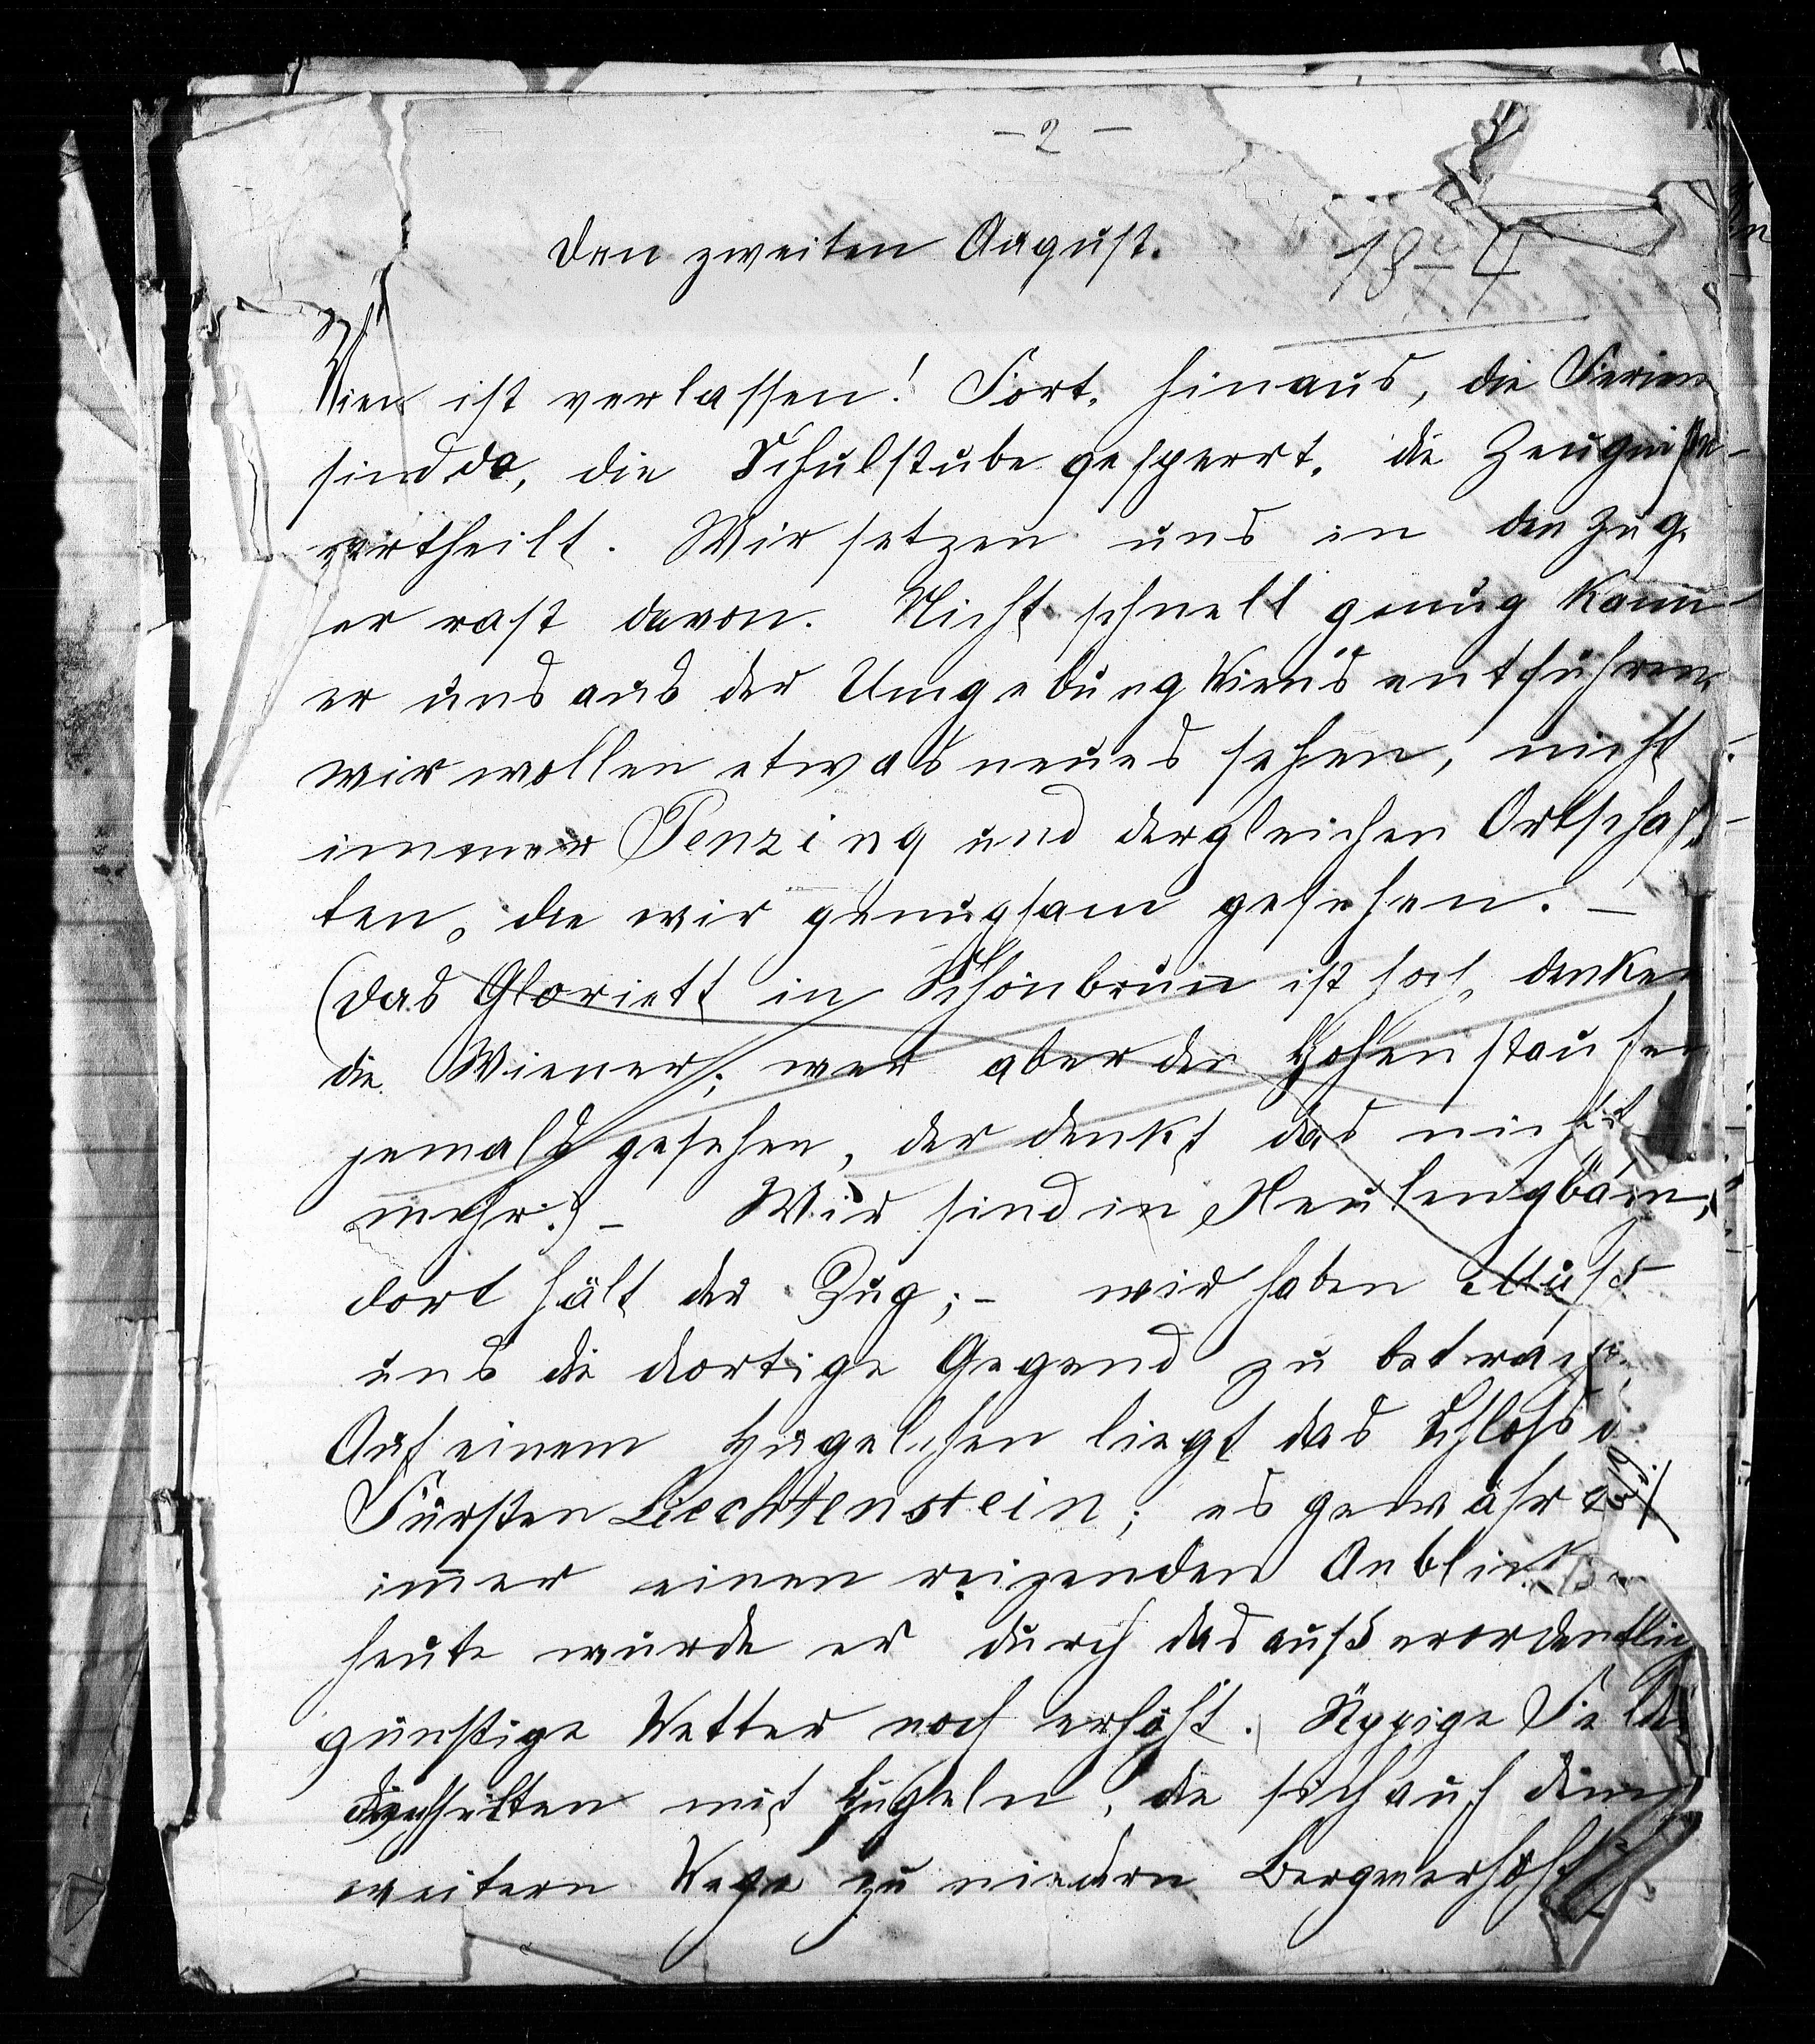 – 2 –
den zweiten August.
18 74
Wien ist verlassen! Fort, hinaus, die Ferien
sind da, die Schulstube gesperrt, die Zeugnisse
vertheilt. Wir setzen uns in den Zug,
er rast davon. Nicht schnell genug kann
er uns aus der Umgebung Wien's entführen,
wir wollen etwas neues sehen, nicht
immer Penzing und dergleichen Ortschaf-
ten, die wir genugsam gesehen. –
(Das Gloriett in Schönbrunn ist hoch, denken
die Wiener; wer aber den Hohenstaufen
jemals gesehen, der denkt das nicht
mehr.) – Wir sind in Neulengbach,
dort hält der Zug; – wir haben Muße
uns die dortige Gegend zu betrach
Auf einem Hügelchen liegt das Schloß d
Fürsten Liechtenstein; es gewährt
im̄er einen reizenden Anblick
heute wurde er durch das außerordentlich
günstige Wetter noch erhöht. Üppige Felder
wechselten mit Hügeln, die sich auf dem
weitern Wege zu niedern Bergen erhöht